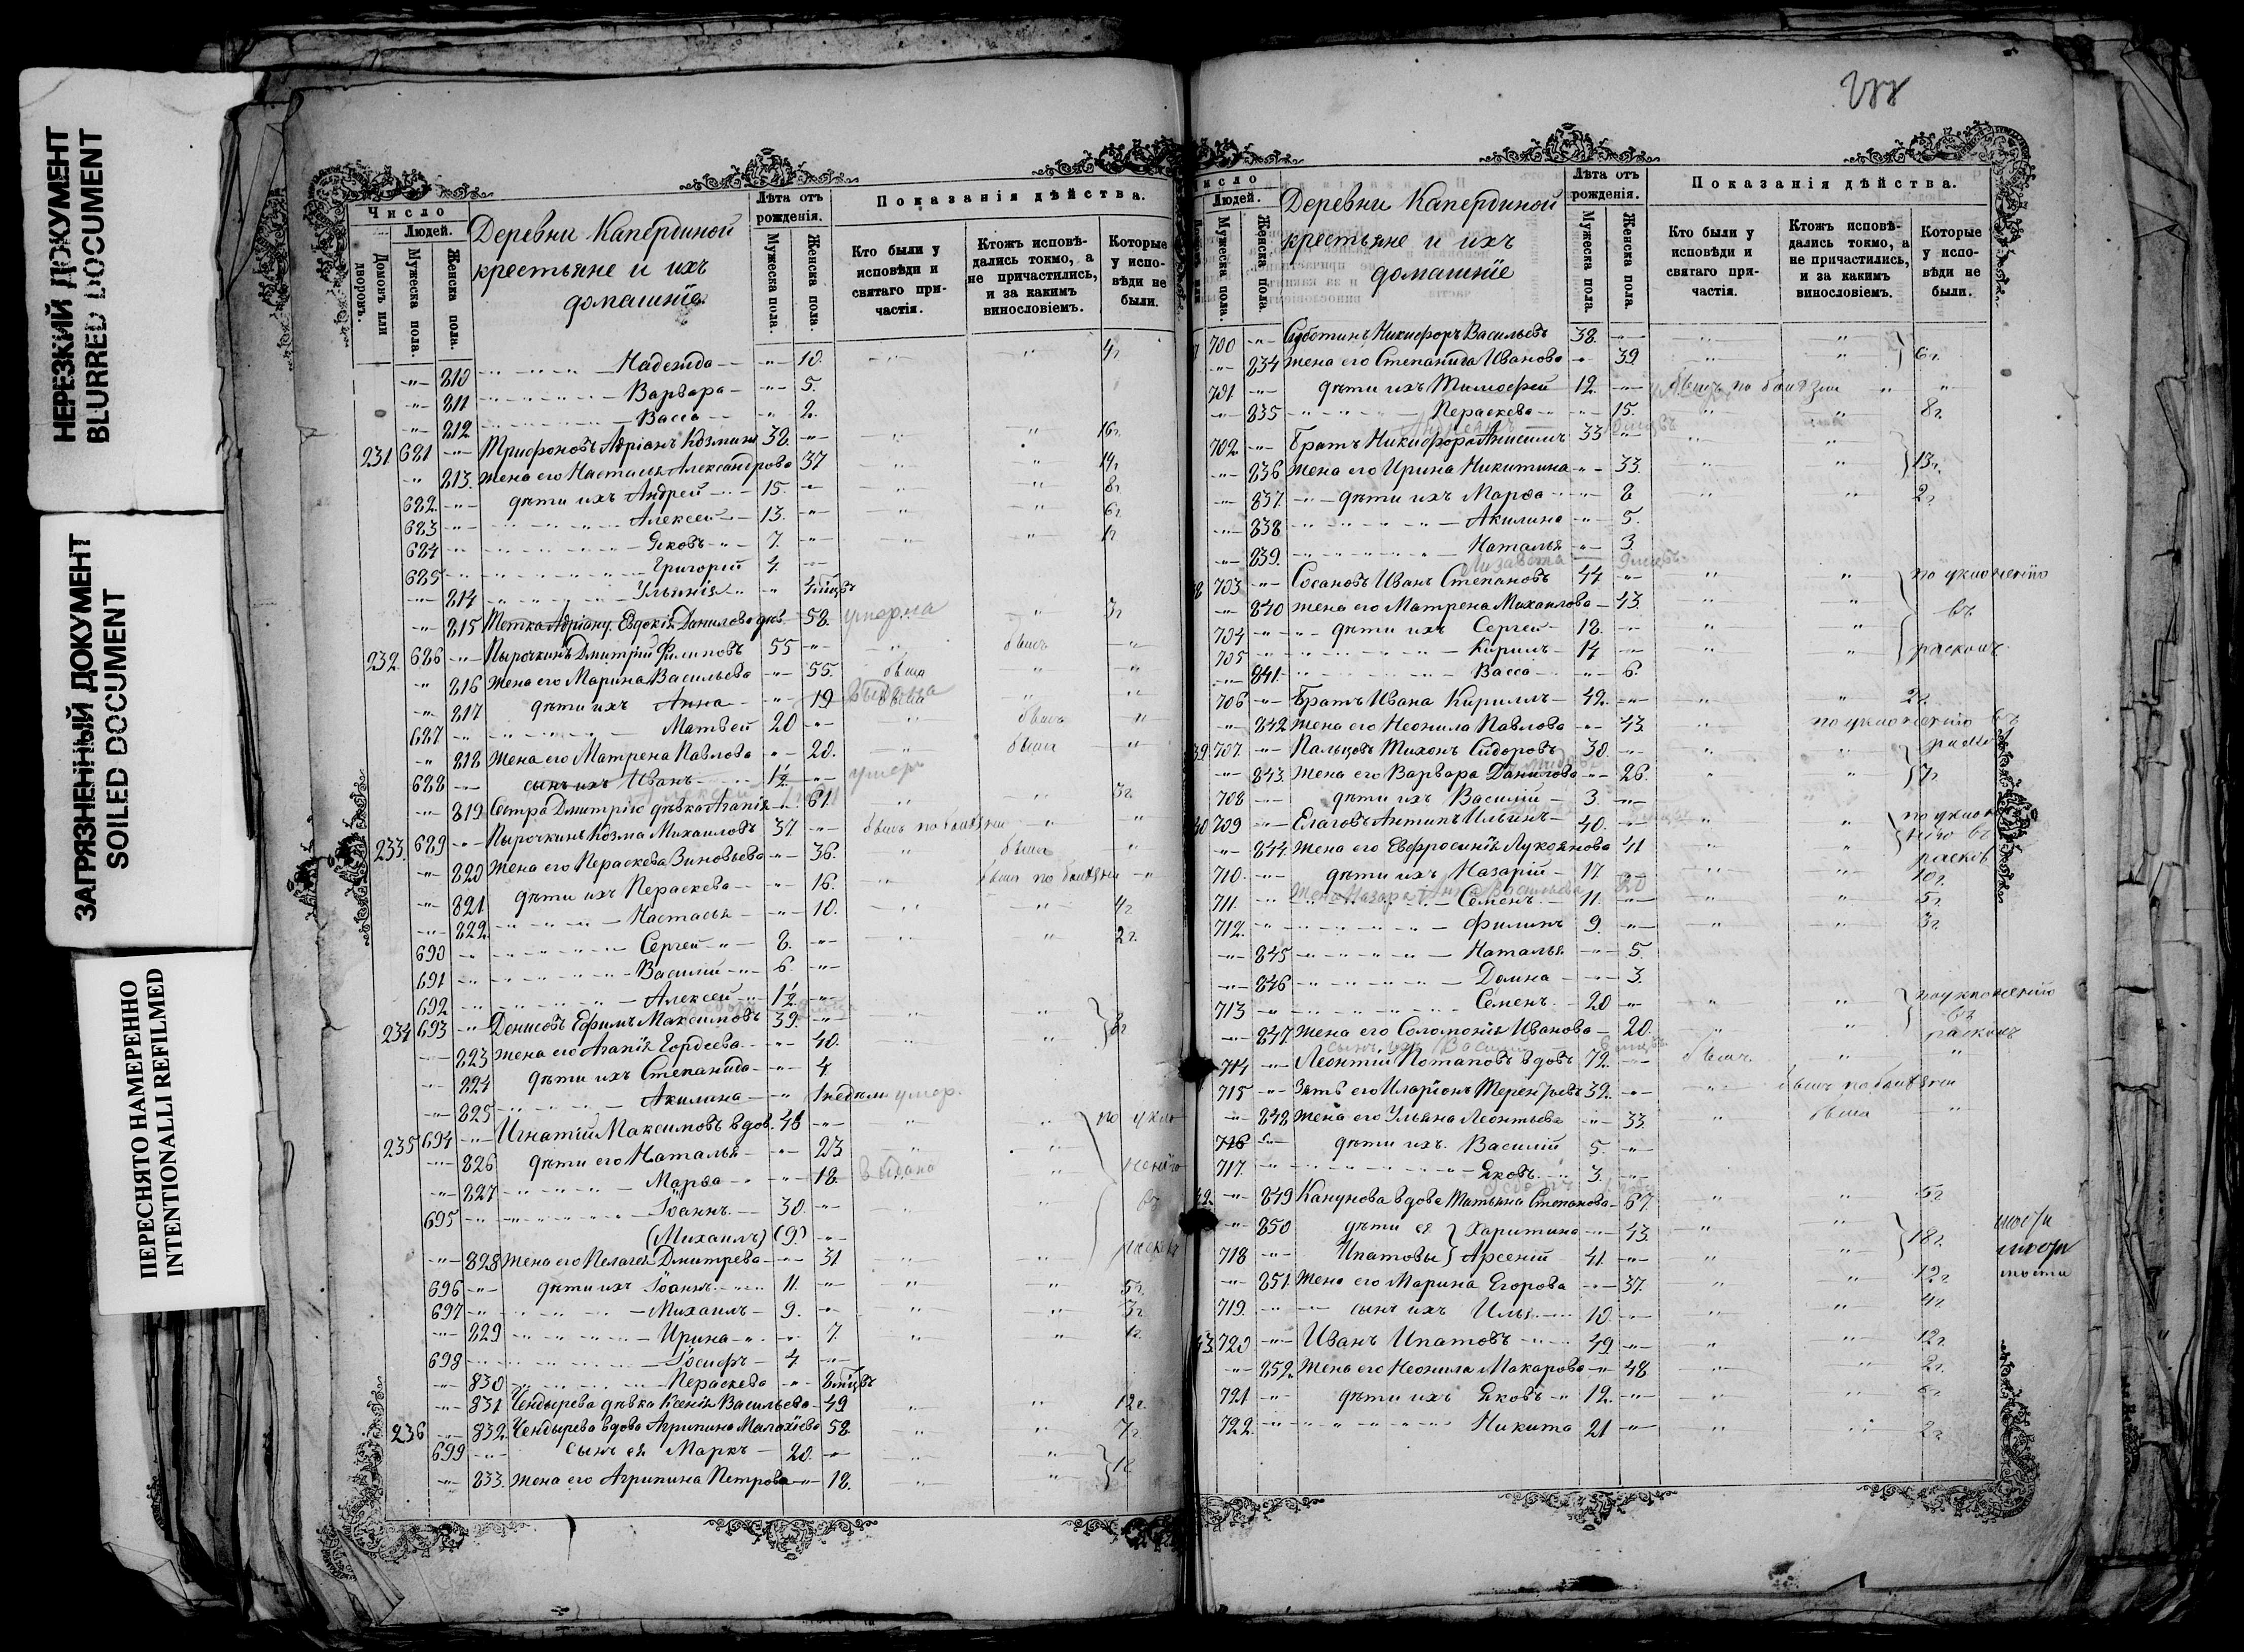 НЕРЕЗКИЙ ДОКУМЕНТ
BLURRED DOCUMENT
ЗАГРЯЗНЕННЫЙ ДОКУМЕНТ
SOILED DOCUMENT
ПЕРЕСНЯТО НАМЕРЕННО
INTENTIONALLI REFILMED
Число
Людей.
Домовъ или дворовъ.
Мужеска пола.
Женска пола.
Деревни Капердиной
крестьяне и ихъ
домашнiе
Лѣта отъ рожденiя.
Мужеска пола.
Женска пола.
Показанiя дѣйства.
Кто были у исповѣди и святаго причастiя.
Ктожъ исповѣдались токмо, а не причастились, и за какимъ винословiемъ.
Которые у исповѣди не были.
810 Надежда 10. 4г
811 Варвара 5.
812 Васса 2.
231 681 Трифоновъ Адрiанъ Козминъ 38. 16г
813. жена его Настасья Александрова 37 14г
682. дѣти ихъ Андрей 15. 8г
683 Алексей 13. 6г
684 Яковъ 7. 1г
685 Григорiй 4
814 Ульянiя 4 мѣсцъ
815 Тетка Адрiану Евдокiя Данилова 58. умерла 3г
232. 686 Пырочкинъ Дмитрiй Филиповъ 55 былъ
816 жена его Марина Васильева 55. была
817 дѣти ихъ Анна 19 выдана
687 Матвей 20 былъ
818 жена его Матрена Павлова 20. была
688 сынъ ихъ Иванъ 1½ умеръ
819 Сестра Дмитрiю дѣвка Агапiя 61. 3г
233. 689 Пырочкинъ Козма Михаиловъ 37 былъ по болѣзни
820 жена его Пераскева Зиновьева 36. была
821 дѣти ихъ Пераскева 16. была по болѣзни
822. Настасья 10. 4г
690 Сергей 8. 2г.
691 Василiй 6.
692 Алексей 1½
234 693 Денисовъ Ефимъ Максимовъ 39. 8г
823 жена его Агапiя Гордеева 40.
824 дѣти ихъ Степанида 4
825 Акилина 1 недѣли умер.
235 694 Игнатiй Максимовъ вдов. 48 по укло
826 дѣти его Наталья 23 ненiю
827 Марѳа 18. выдана въ
695 Iоаннъ 30. расколъ
(Михаилъ) (9.)
828 Жена его Пелагея Дмитрева 31
696 дѣти ихъ Iоаннъ 11. 5г.
697 Михаилъ 9. 3г
829 Ирина 7. 1г
698 Iосифъ 4
830 Пераскева 8 мѣсцъ
831 Чендырева дѣвка Ксенiя Васильева 49 12г.
236 832. Чендырева вдова Агрипина Малахiева 58. 7г.
699 сынъ ея Маркъ 20.
833. жена его Агрипина Петрова 18. 1г
Число
Людей.
Мужеска пола.
Женска пола.
Деревни Капердиной
крестьяне и ихъ
домашнiе
Лѣта отъ рожденiя.
Мужеска пола.
Женска пола.
Показанiя дѣйства.
Кто были у исповѣди и святаго причастiя.
Ктожъ исповѣдались токмо, а не причастились, и за какимъ винословiемъ.
Которые у исповѣди не были.
700 Суботинъ Никифоръ Васильевъ 38.
834 жена его Степанида Иванова 39 6г.
701 дѣти ихъ Тимофей 12. былъ по болѣзни
835 Пераскева 15. 8г
702. Братъ Никифора Анисимъ 33
836 жена его Ирина Никитина 33. 13г.
837. дѣти ихъ Марѳа 8 2г
838 Акилина 5.
839. Наталья 3.
Лизавета
703 Сосановъ Иванъ Степановъ 44 по уклоненiю
840 жена его Матрена Михаилова 43. въ
704 дѣти ихъ Сергей 18. расколъ
705 Кирилъ 14
841. Васса 6.
706 Братъ Ивана Кириллъ 42. 2г.
842 жена его Неонила Павлова 43 по уклоненiю въ
39 707. Пальцовъ Тихонъ Сидоровъ 30. раско
843. жена его Варвара Данилова 26. 7г
708 дѣти ихъ Василiй 3.
40 709 Елаговъ Антипъ Ильинъ 40. по укло
844. жена его Евфросинiя Лукоянова 41 нiю въ
раскол
710. дѣти ихъ Назарiй 17 10г.
жена Назара Анна Васильева 20
711. Семенъ 11. 5г
712. Филипъ 9. 3г
845 Наталья 5.
846 Домна 3.
713 Семенъ. 20 по уклоненiю
847. жена его Соломонiя Иванова 20. въ
расколъ
сынъ ихъ Василiй
714 Леонтiй Потаповъ вдовъ 72. былъ
715 Зять его Иларiонъ Терентьевъ 32. былъ по болѣзни
848 жена его Ульяна Леонтьева 33 была
716 дѣти ихъ. Василiй 5.
717. Яковъ 3.
42. 849 Канунова вдова Татьяна Степанова 67. 5г
850 дѣти ея Харитина 43. 18г.
718 Ипатовы Арсенiй 41.
851 жена его Марина Егорова 37. 12г
719. сынъ ихъ Илья 10. 4г
43. 720 Иванъ Ипатовъ 49 12г
852. жена его Неонила Макарова 48 2г.
721 дѣти ихъ Яковъ 12.
722. Никита 21 2г